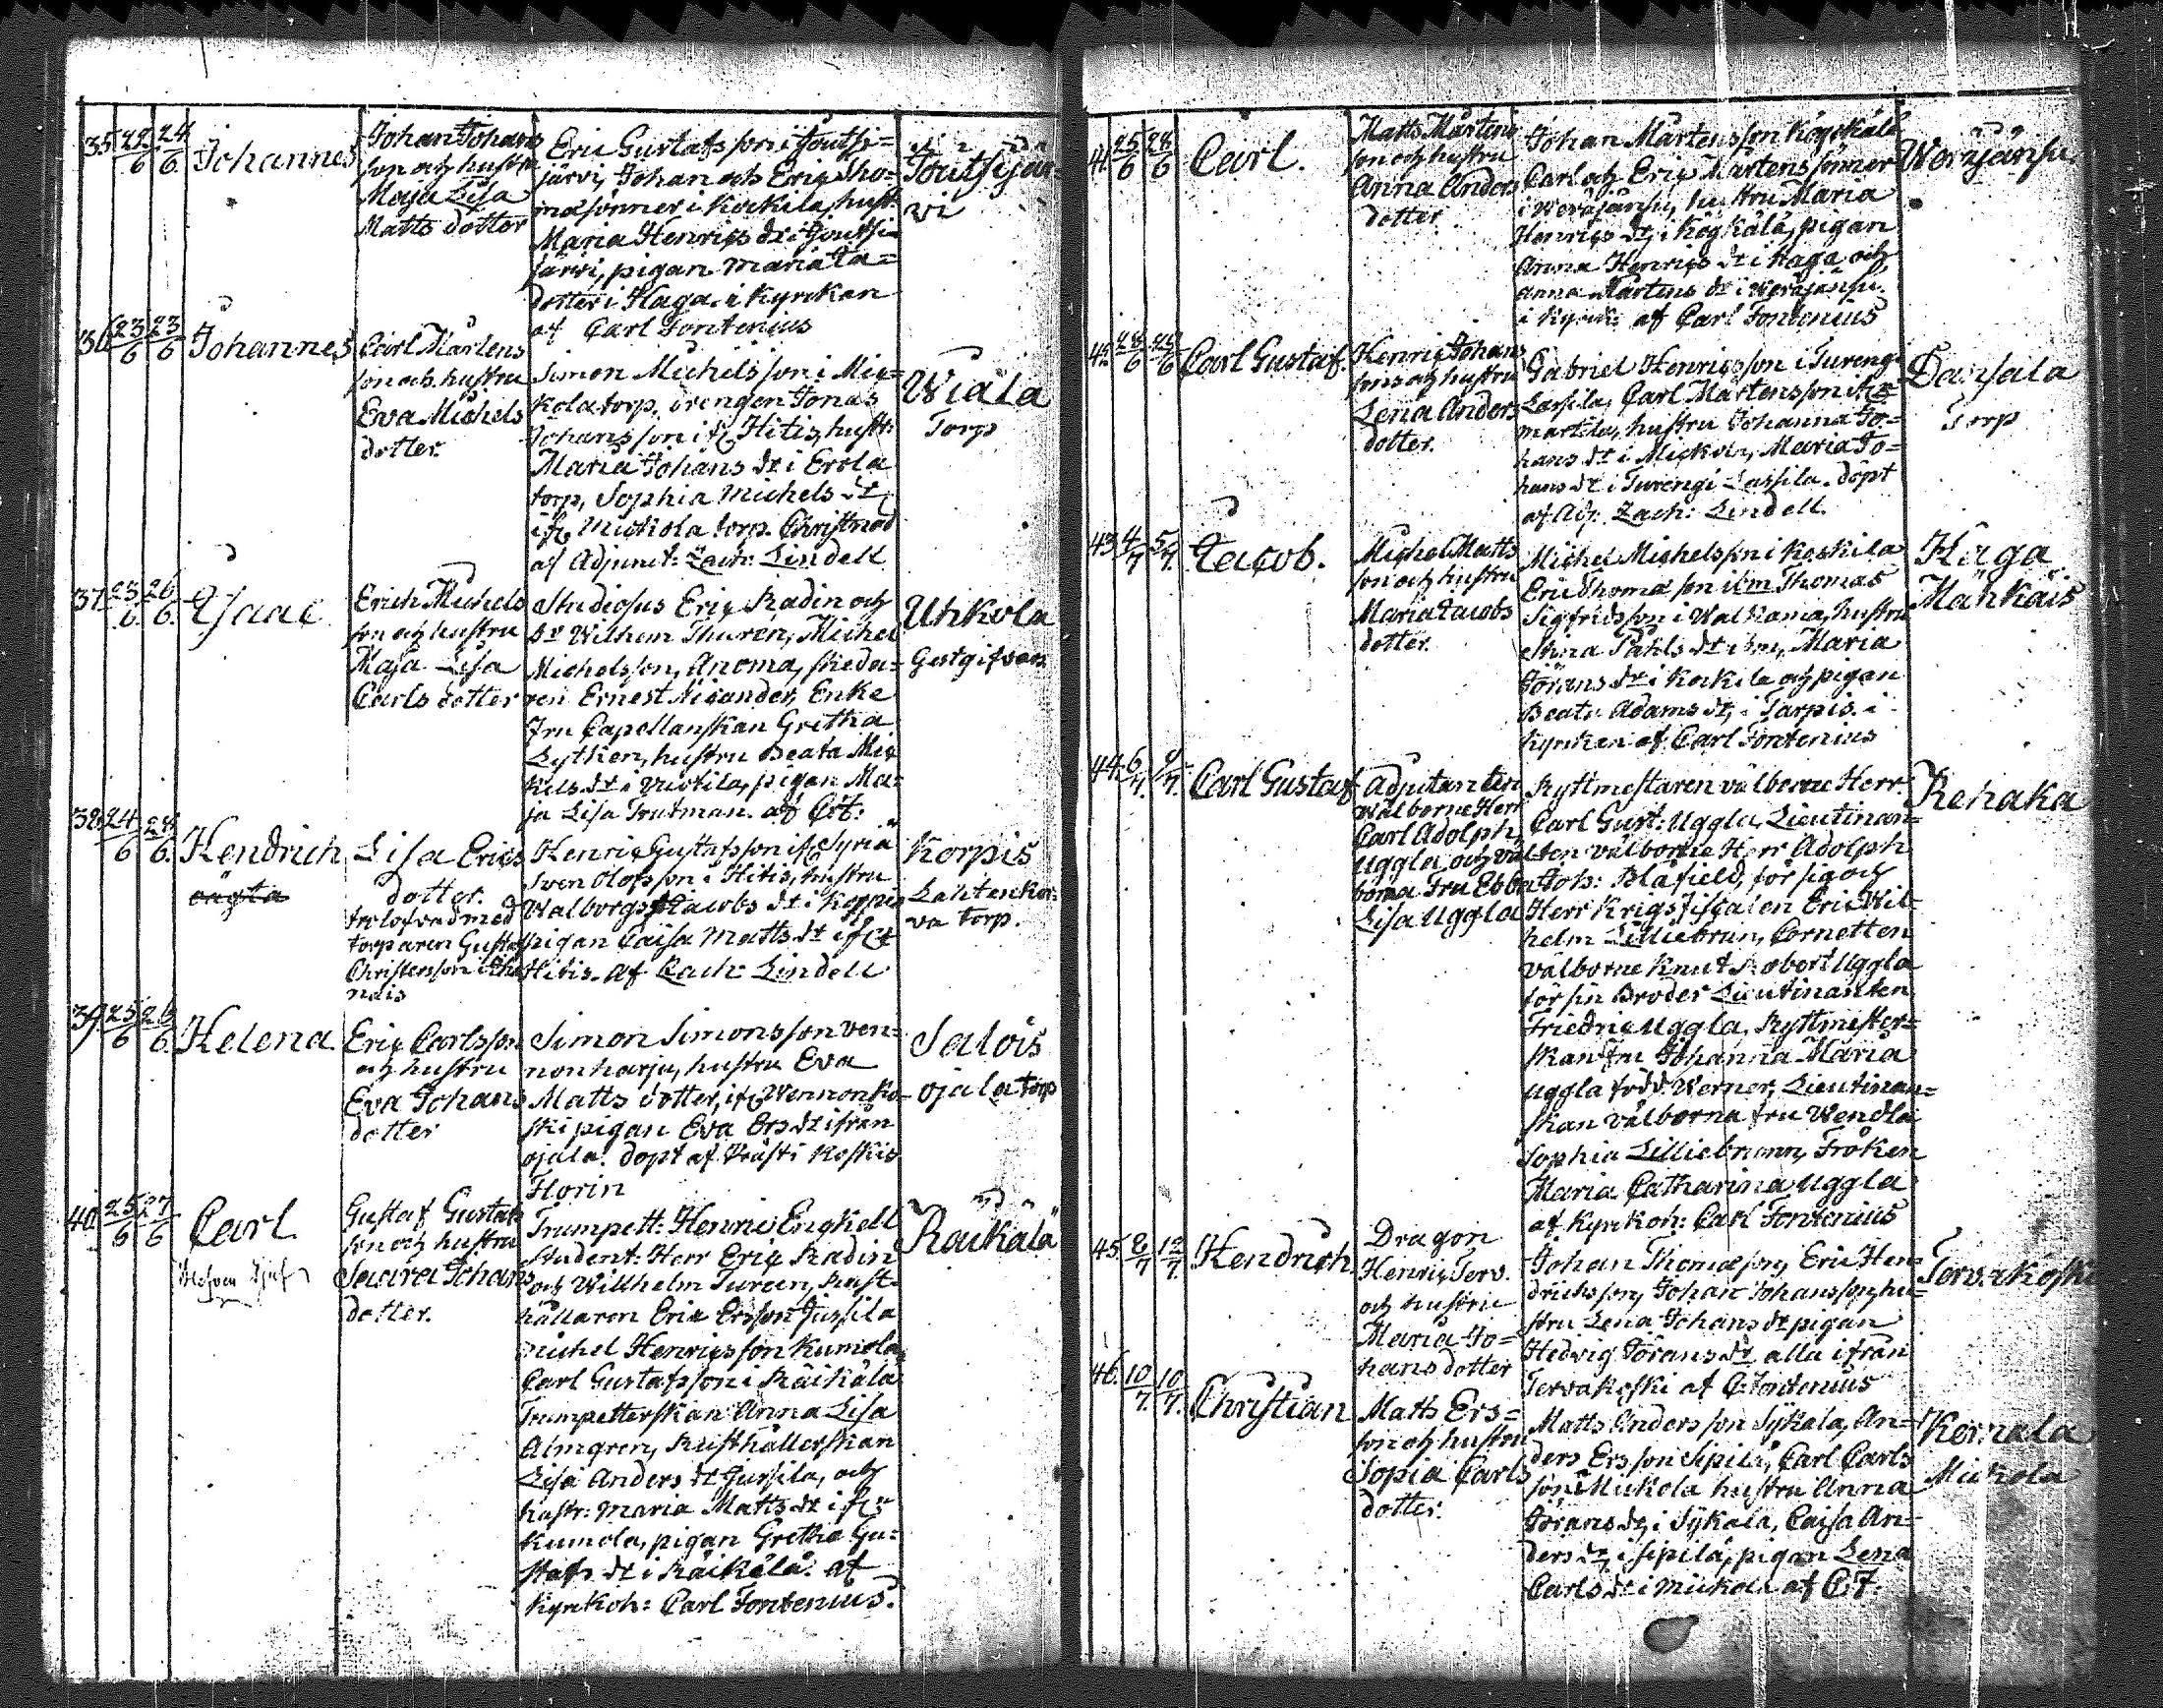 35. 22/6 24/6 Johannes
Johan Johans
son och hustru
Maja Lisa
Matts dotter
Eric Gustafsson i Joutsi=
järvi, Johan och Eric Tho=
mæ sönner i Kockila, hust:
Maria Henrics dr i Joutsi=
järvi, pigan Maria
dotter i Haga i Kyrckan
af Carl Fontenius
Joutsijär=
vi
36. 23/6 23/6 Johannes
Carl Mårtens
son och hustru
Eva Michels
dotter
Simon Michelsson i Mic=
kola torp, drengen Jonas
Johansson ifr. Hitis, hustr:
Maria Johans dr i Erola
torp, Sophia Michels dr
ifr. Mickola torp. Christnad
af Adjunct: Zach: Lindell
Wiala
Torp
37. 23/6 26/6 Isaac
Erich Michels
son och hustru
Maja Lisa
Carls dotter
Studiosus Eric Radin och
Wilhem Thurén, Michel
Michelsson, Anoma,
ren Ernest Nicander, Enke
Fru Capellanskan Gretha
Lythen, hustru Beata Mic
kels dr i pigan Ma=
ja Lisa Trutman. af C:F:
Uhkola
Gestgifvare
38. 24/6 24/6 Hendrich
oägta
Lisa Erics
dotter.
trolofvad med
torparen Gustaf
Christersson i
nais
Henric Gustafsson ifr Syria
Sven Olofsson i Hitis, hustru
Walborg Jacobs dr i Korpis
pigan Caisa Matts dr ifr
Hitis. af Zach: Lindell
Korpis
Lahtenkor=
va torp.
39. 25/6 26/6 Helena
Eric Carlsson
och hustru
Eva Johans
dotter
Simon Simonsson ven=
nonharju, hustru Eva
Matts dotter, ifr Wennonko=
ski pigan Eva Ers dr ifrån
ojala. döpt af
Florin
Salois
ojala torp
40. 25/6 27/6 Carl
Gustaf Gustafs
son och hustru
Saara Johans
dotter.
Trumpett: Henric Engkell
Student: Herr Eric Radin
och Willhelm Tureen, Rust=
hållaren Eric Ersson Jussila
Michel Henricsson Kumola,
Carl Gustafsson i Räikälä
Trumpetterskan Anna Lisa
Almgren, Rusthållerskan
Lisa Anders dr Jussila, och
hustr: Maria Matts dr ifr
Kumola, pigan Gretha Gu=
stafs dr i Räikälä. af
Kyrckoh: Carl Fontenius.
Räikälä
41. 25/6 28/6 Carl.
Matts Mårtens
son och hustru
Anna Anders
dotter
Johan Mårtensson Kögkälä
Carl och Eric Mårtens sönner
i Weräjänsu, hustru Maria
Henrics dr, i Kögkälä, pigan
Anna Henrics dr i Haga och
Anna Mårtens dr i Weräjänsu.
i Kyrck: af Carl Fontenius
Weräjänsu
42. 28/6 28/6 Carl Gustaf.
Henric Johans
sons och hustru
Lena Anders
dotter.
Gabriel Henricsson i Turengi
Lassila, Carl Mårtensson
marttila, hustru Johanna Jo=
hans dr i Mickola, Maria Jo=
hans dr i Turengi Lassila. döpt
af Adj: Zach: Lindell.
Torp
43. 4/7 5/7 Jacob.
Michel Matts
son och hustru
Maria Jacobs
dotter.
Michel Michelsson i Kockila
Eric Thomæ son ibm Thomas
Sigfridsson i Walkama, hustru
Stina Påhls dr ibm, Maria
Görans dr i Kockila och pigan
Beata Adams dr, i Tarpis. i
kyrckan af Carl Fontenius
Haga
Mähkäis
44. 6/7 9/7. Carl Gustaf
Adjutanten
Wälborne Herr
Carl Adolph
Uggla och väl
borna Fru Ebba
Lisa Uggla
Ryttmestaren välborne Herr
Carl Gust: Uggla, Lieutinan=
ten välborne Herr Adolph
Joh: Blåfield, för sig och
Herr Krigsfiscalen Eric Wil=
helm Lilliebrun, Cornetten
välborne Knut Robert Uggla
för sin Broder Lieutinanten
Friedric Uggla, Ryttmester=
skan Fru Johanna Maria
Uggla född Werner, Lieutinan=
skan välborna fru Wendla
Sophia Lilliebrunn, Fröken
Maria Catharina Uggla
af Kyrckoh: Carl Fontenius
Rehaka
45. 8/7 12/7. Hendrich.
Dragon
Henric Terv.
och hustru
Maria Jo=
hans dotter
Johan Thomæson, Eric Hen
drichsson, Johan Johansson, hu=
stru Lena Johans dr pigan
Hedvig Görans dr alla ifrån
Tervakoski af C: Fontenius
Tervakoski
46. 10/7. 10/7. Christian
Matts Ers=
son och hustru
Sopia Carls
dotter.
Matts Andersson Sykälä, An=
ders Ersson Sipilä, Carl Carls
son Mickola hustru Anna
Görans dr, i Sykälä, Caisa An=
ders dr, i Sipilä, pigan Lena
Carls dr i Mickola af C:F.
Kernala
Mickola